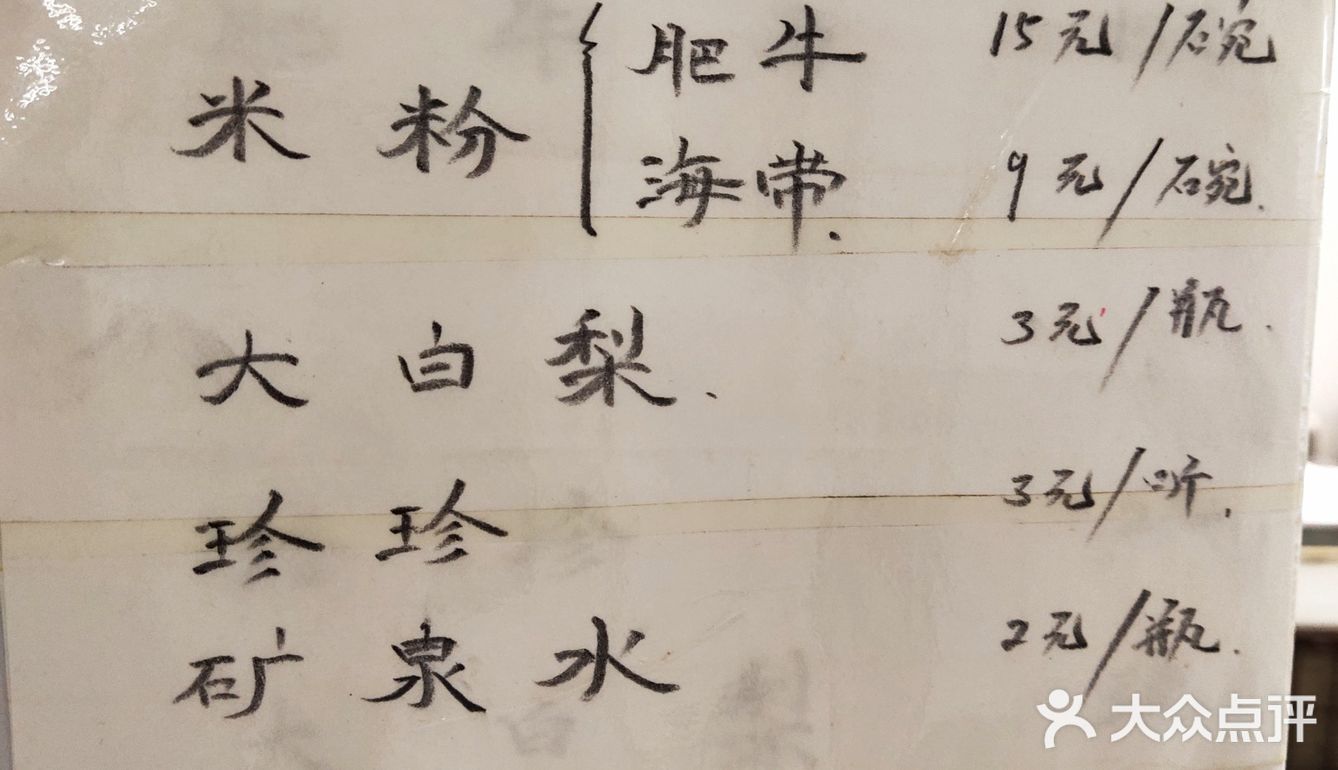 米粉 肥牛 15元/碗
海带. 9元/碗.
大白梨. 3元/瓶.
珍珍 3元/听.
矿泉水 2元/瓶.
大众点评